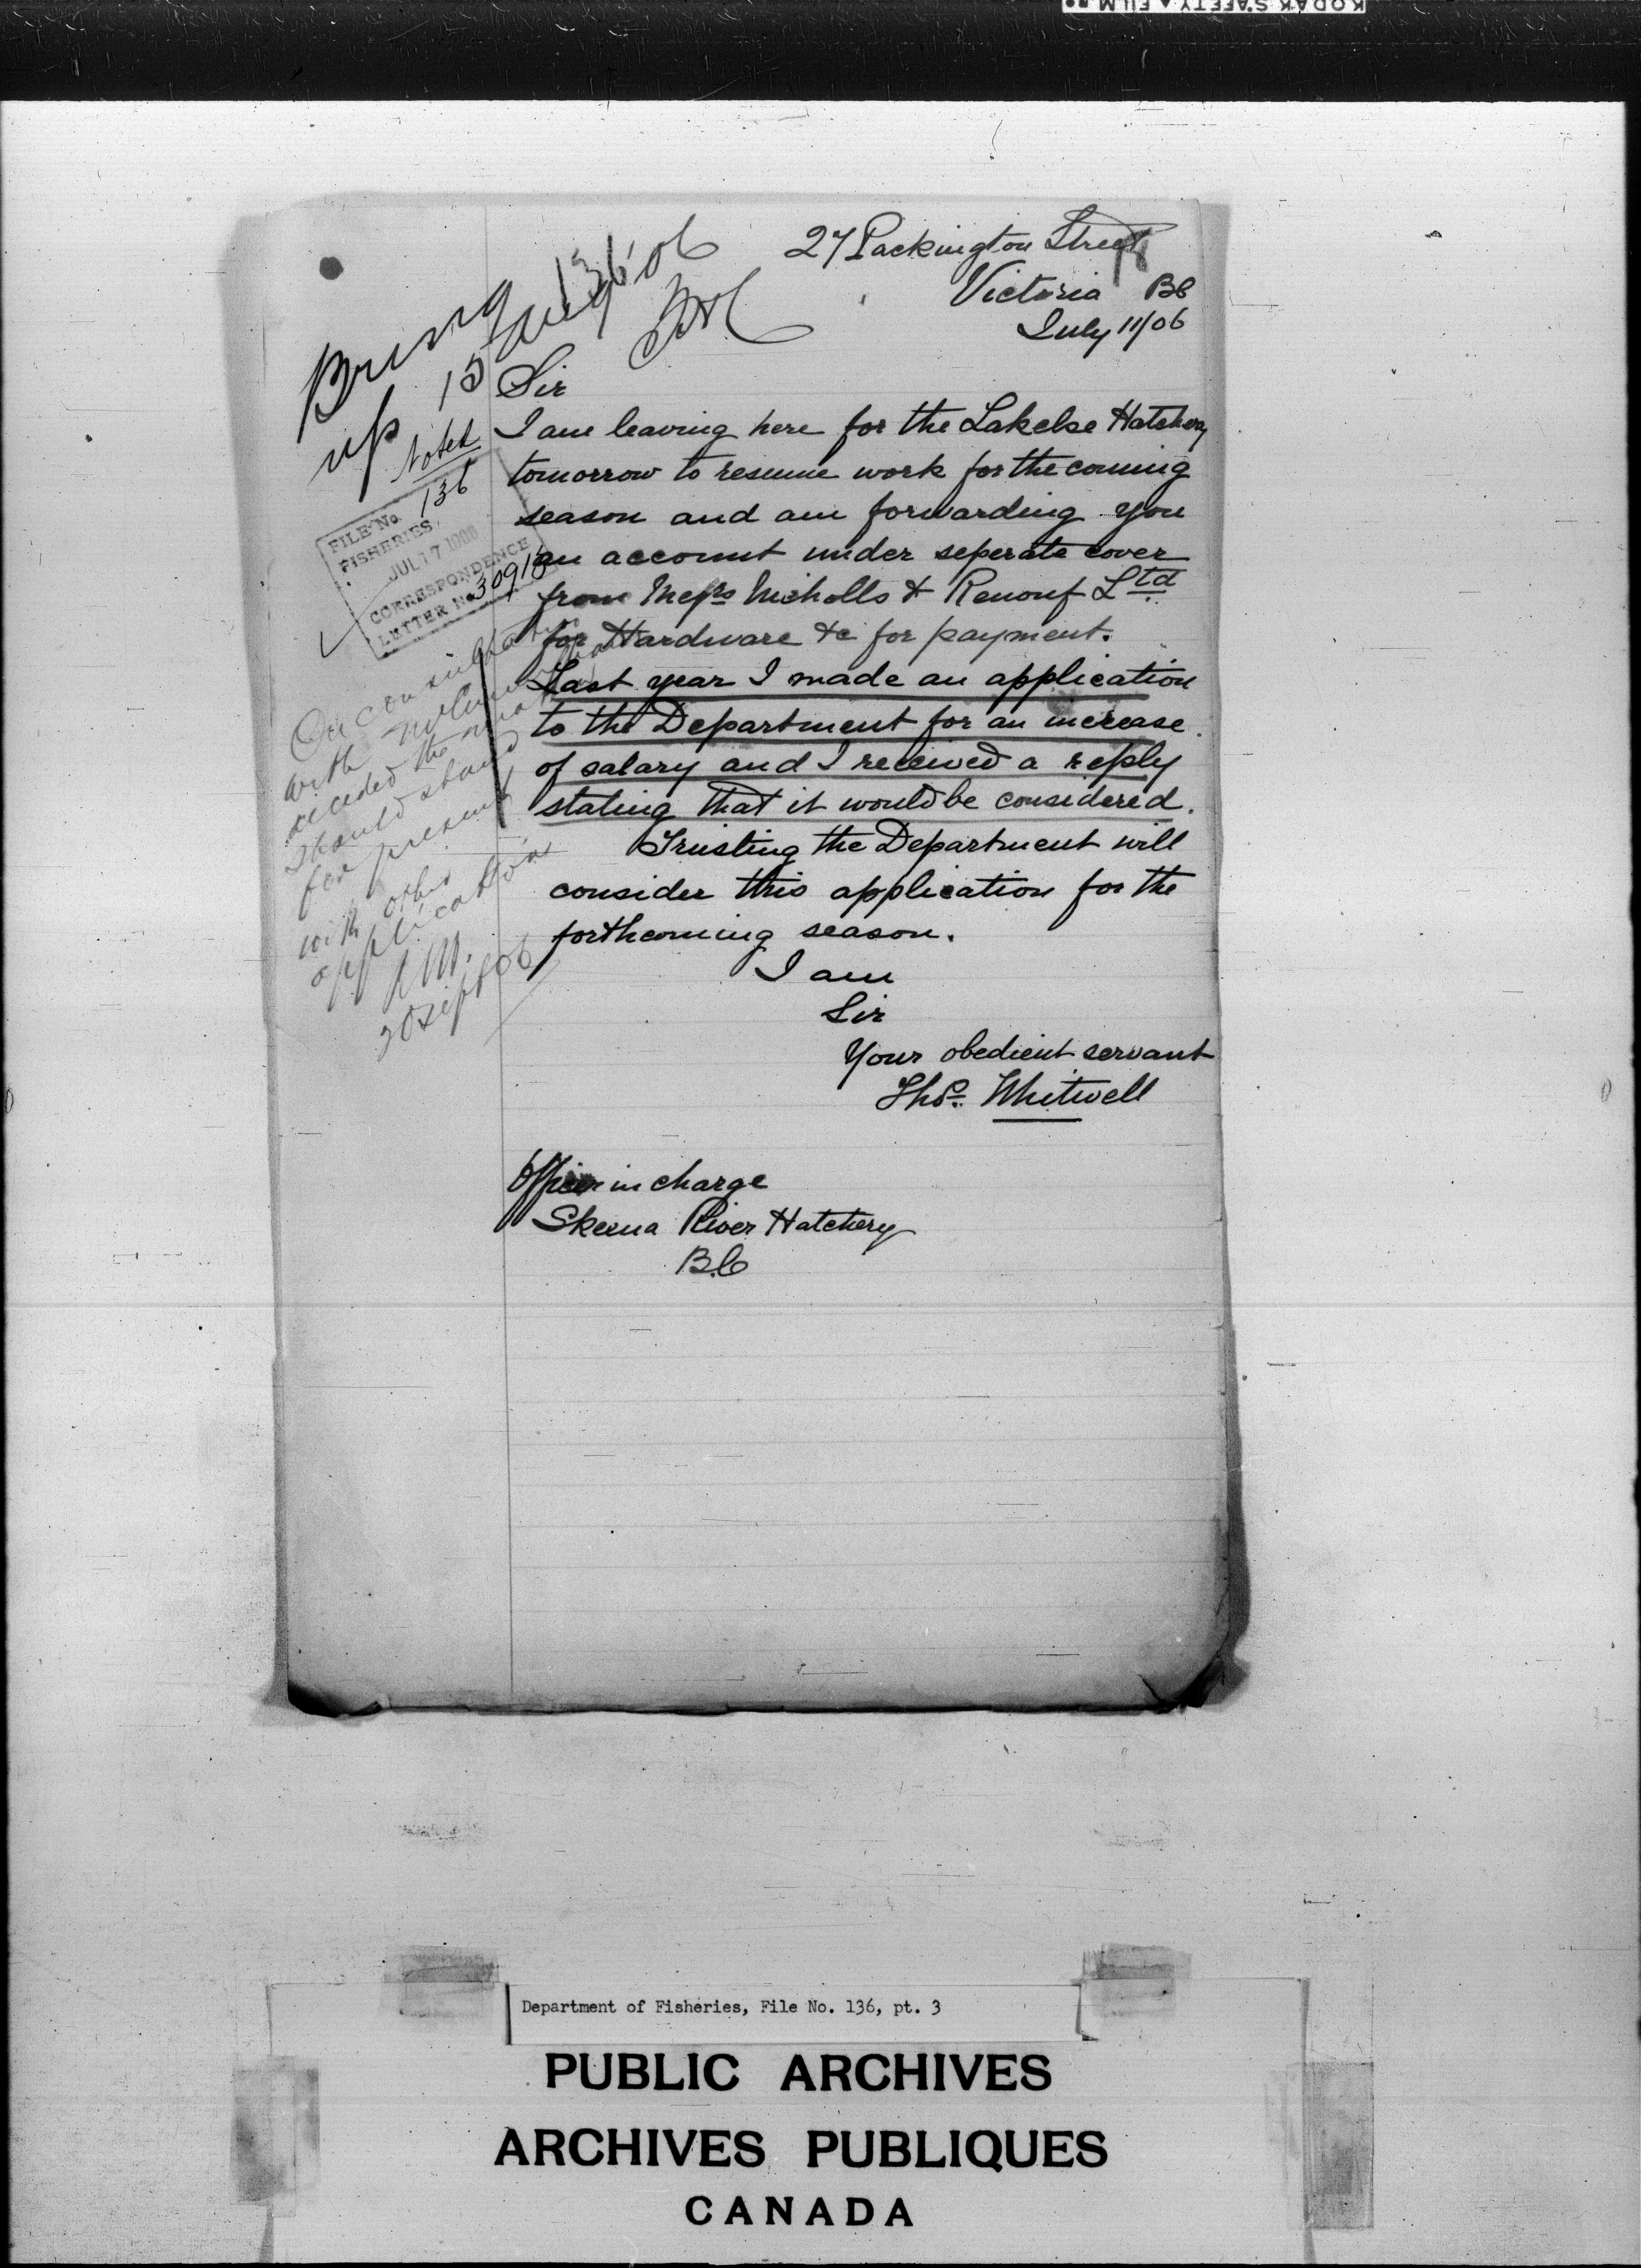 KODAK SAFETY FILM
27 Packington Street
Victoria BC
July 11/06
Bring
up 15 Aug '06
136
Noted
136
FILE No.
FISHERIES.
JUL 17 1906
CORRESPONDENCE
LETTER No. 30910
Sir
I am leaving here for the Lakelse Hatchery
tomorrow to resume work for the coming
season and am forwarding you
an account under seperate cover
from Messrs Nicholls & Renouf Ltd
for Hardware &c for payment.
Last year I made an application
to the Department for an increase
of salary and I received a reply
stating that it would be considered.
Trusting the Department will
consider this application for the
forthcoming season.
I am
Sir
Your obedient servant
Thos. Whitwell
Officer in charge
Skeena River Hatchery
B.C
On consultation
with
decided the matter
should stand
for present
with other
applications
20 Sept 06
Department of Fisheries, File No. 136, pt. 3
PUBLIC ARCHIVES
ARCHIVES PUBLIQUES
CANADA